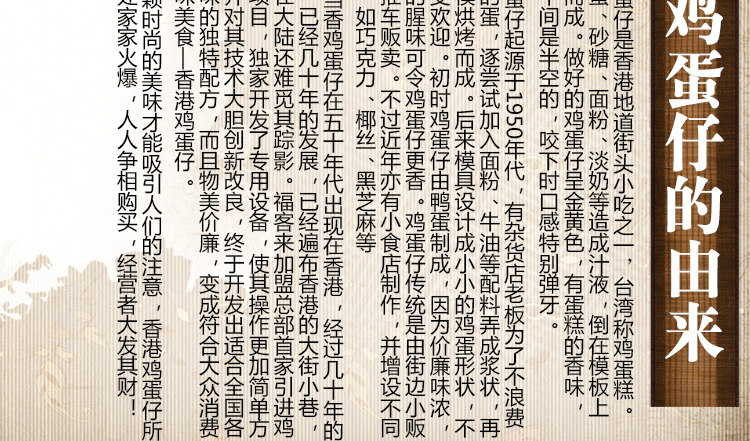 鸡蛋仔的由来
蛋仔是香港地道街头小吃之一，台湾称鸡蛋糕。
蛋、砂糖、面粉、淡奶等造成汁液，倒在模板上
而成。做好的鸡蛋仔呈金黄色，有蛋糕的香味，
中间是半空的，咬下时口感特别弹牙。
蛋仔起源于1950年代，有杂货店老板为了不浪费
的蛋，逐尝试加入面粉、牛油等配料弄成浆状，再
模烘烤而成。后来模具设计成小小的鸡蛋形状，不
受欢迎。初时鸡蛋仔由鸭蛋制成，因为价廉味浓，
的腥味可令鸡蛋仔更香。鸡蛋仔传统是由街边小贩
推车贩卖。不过近年亦有小食店制作，并增设不同
如巧克力、椰丝、黑芝麻等
当香鸡蛋仔在五十年代出现在香港，经过几十年的
，已经几十年的发展，已经遍布香港的大街小巷，
在大陆还难觅其踪影。福客来加盟总部首家引进鸡
项目，独家开发了专用设备，使其操作更加简单方
并对其技术大胆创新改良，终于开发出适合全国各
味的独特配方，而且物美价廉，变成符合大众消费
味美食—香港鸡蛋仔。
颖时尚的美味才能吸引人们的注意，香港鸡蛋仔所
处家家火爆，人人争相购买，经营者大发其财！